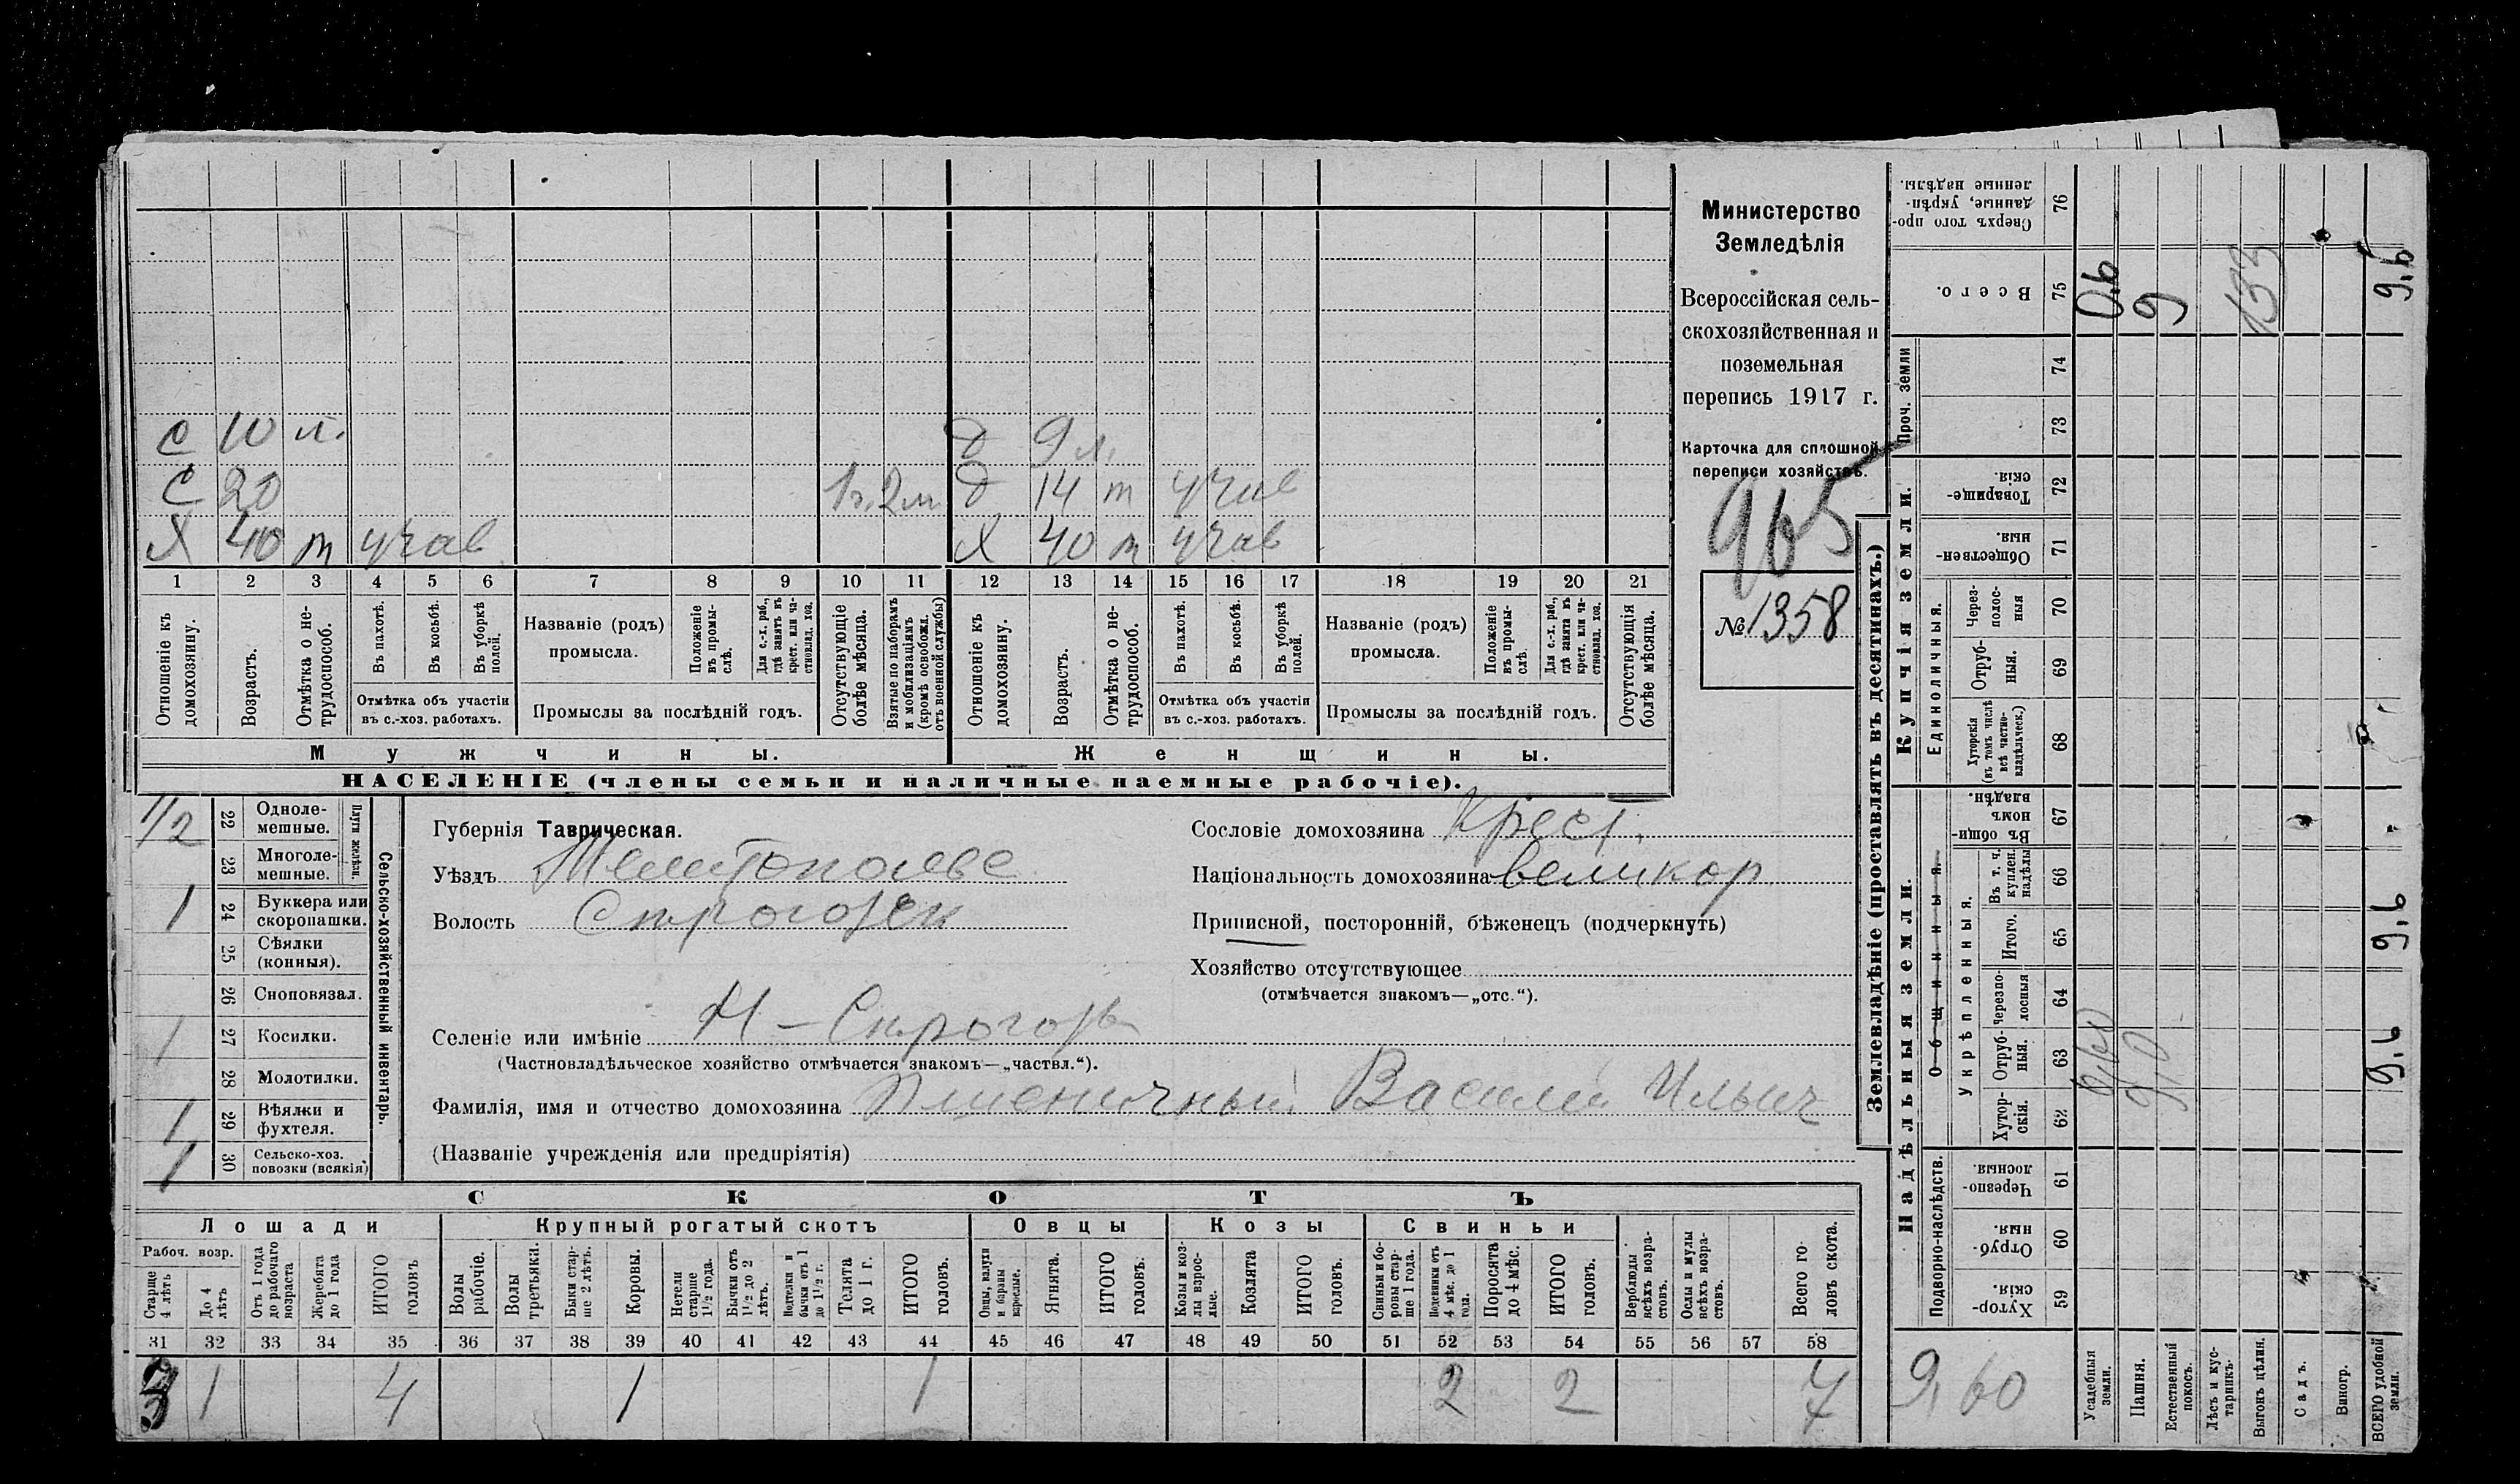 С 10 л. д 9 л.
С 20 1 г. 2 м. д 14 т учас
Х 40 т учас Х 40 т учас
1 2 3 4 5 6 7 8 9 10 11 12 13 14 15 16 17 18 19 20 21
Отношеніе къ домохозяину.
Возрастъ.
Отмѣтка о не-трудоспособ.
Въ пахотѣ.
Въ косьбѣ.
Въ уборкѣ полей.
Отмѣтка объ участіи
въ с.-хоз. работахъ.
Названіе (родъ)
промысла.
Положеніе въ промы-слѣ.
Для с.-х. раб., гдѣ занятъ въ крест. или ча-стновлад. хоз.
Промыслы за послѣдній годъ.
Отсутствующіе болѣе мѣсяца.
Взятые по наборамъ и мобилизаціямъ (кромѣ освобожд. отъ военной службы)
Отношеніе къ домохозяину.
Возрастъ.
Отмѣтка о не-трудоспособ.
Въ пахотѣ.
Въ косьбѣ.
Въ уборкѣ полей.
Отмѣтка объ участіи
въ с.-хоз. работахъ.
Названіе (родъ)
промысла.
Положеніе въ промы-слѣ.
Для с.-х. раб., гдѣ занята въ крест. или ча-стновлад. хоз.
Промыслы за послѣдній годъ.
Отсутствующія болѣе мѣсяца.
Мужчины. Женщины.
НАСЕЛЕНІЕ (члены семьи и наличные наемные рабочіе).
Министерство
Земледѣлія
Всероссійская сель-
скохозяйственная и
поземельная
перепись 1917 г.
Карточка для сплошной
переписи хозяйствъ.
965
№ 1358
Сельско-хозяйственный инвентарь.
Плуги желѣзн.
1/2 22 Одноле-мешные.
23 Многоле-мешные.
1 24 Буккера или скоропашки.
25 Сѣялки (конныя).
26 Сноповязал.
1 27 Косилки.
28 Молотилки.
1 29 Вѣялки и фухтеля.
1 30 Сельско-хоз. повозки (всякія)
Губернія Таврическая.
Уѣздъ Мелитопольс
Волость Сирогозск
Сословіе домохозяина Крест.
Національность домохозяина великор
Приписной, посторонній, бѣженецъ (подчеркнуть)
Хозяйство отсутствующее
(отмѣчается знакомъ—„отс.“).
Селеніе или имѣніе Н - Сирогозы
(Частновладѣльческое хозяйство отмѣчается знакомъ—„частвл.“).
Фамилія, имя и отчество домохозяина Пшеничный Василий Ильич
(Названіе учрежденія или предпріятія)
СКОТЪ
Лошади Крупный рогатый скотъ Овцы Козы Свиньи
Рабоч. возр.
Старше 4 лѣтъ
До 4 лѣтъ
Отъ 1 года до рабочаго возраста
Жеребята до 1 года
ИТОГО головъ
Волы рабочіе.
Волы третьяки.
Быки стар-ше 2 лѣтъ.
Коровы.
Нетели старше 1½ года.
Бычки отъ 1½ до 2 лѣтъ.
Подтелки и бычки отъ 1 до 1½ г.
Телята до 1 г.
ИТОГО головъ.
Овцы, валухи и бараны взрослые.
Ягнята.
ИТОГО головъ.
Козы и коз-лы взрос-лые.
Козлята
ИТОГО головъ.
Свиньи и бо-ровы стар-ше 1 года.
Подсвинки отъ 4 мѣс. до 1 года.
Поросята до 4 мѣс.
ИТОГО головъ.
Верблюды всѣхъ возра-стовъ.
Ослы и мулы всѣхъ возра-стовъ.
Всего го-ловъ скота.
31 32 33 34 35 36 37 38 39 40 41 42 43 44 45 46 47 48 49 50 51 52 53 54 55 56 57 58
3 1 4 1 1 2 2 7
Землевладѣніе (проставлять въ десятинахъ.)
Надѣльныя земли.
Купчія земли.
Проч. земли
Подворно-наслѣдств.
Общинныя.
Укрѣпленныя.
Единоличныя.
59 Хутор-скія.
60 Отруб-ныя.
61 Черезпо-лосныя.
62 Хутор-скія.
63 Отруб-ныя.
64 Черезпо-лосныя
65 Итого.
66 Въ т. ч. куплен. надѣлы
67 Въ общи-номъ владѣн.
68 Хуторскія (въ томъ числѣ всѣ частно-владѣльческ.)
69 Отруб-ныя.
70 Через-полос-ныя
71 Обществен-ныя.
72 Товарище-скія.
73
74
75 Всего.
76 Сверхъ того про-данные, укрѣп-ленные надѣлы.
9,60
Усадебныя земли. 0,60 0,6
Пашня. 9,0 9
Естественный покосъ.
Лѣсъ и кус-тарникъ.
Выгонъ цѣлин. 133
Садъ.
Виногр.
ВСЕГО удобной земли. 9,6 9,6 9,6